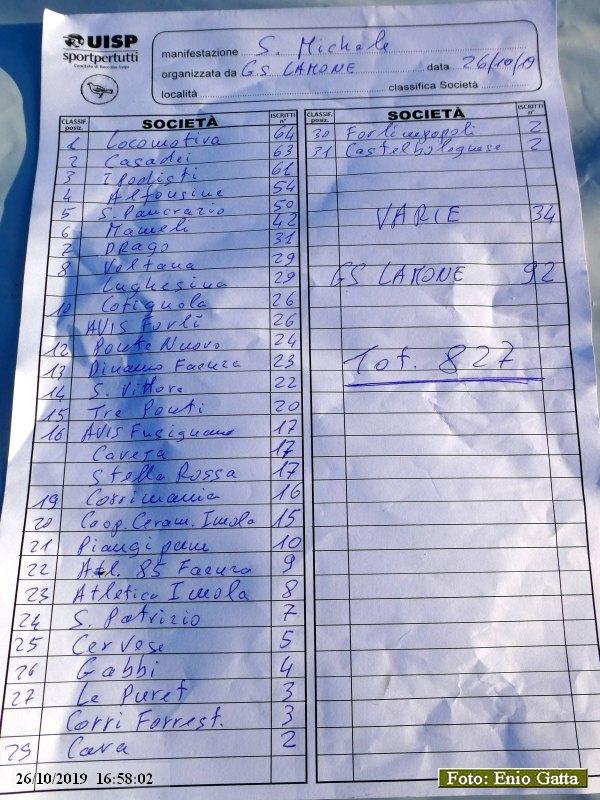 UISP
sportpertutti
manifestazione S. Michele
organizzata da GS LAMONE data 26/10/19
località classifica Società
CLASSIF. posiz. SOCIETÀ ISCRITTI n°
1 Locomotiva 64
2 Casadei 63
3 Ipodisti 61
4 Alfonsine 54
5 S. Pancrazio 50
6 Mameli 42
7 DRAGO 31
8 Voltana 29
Lughesina 29
10 Cotignola 26
AVIS Forlì 26
12 Ponte Nuovo 24
13 Dinamo Faenza 23
14 S. Vittore 22
15 Tre Ponti 20
16 AVIS Fusignano 17
Caveja 17
Stella Rossa 17
19 Corrimania 16
20 Coop. Ceram. Imola 15
21 Piangipane 10
22 Atl. 85 Faenza 9
23 Atletica Imola 8
24 S. Patrizio 7
25 Cervese 5
26 Gabbi 4
27 Le Puret 3
Corri Forrest. 3
29 Cava 2
CLASSIF. posiz. SOCIETÀ ISCRITTI n°
30 Forlimpopoli 2
31 Castelbolognese 2
VARIE 34
GS LAMONE 92
Tot. 827
26/10/2019 16:58:02
Foto: Enio Gatta